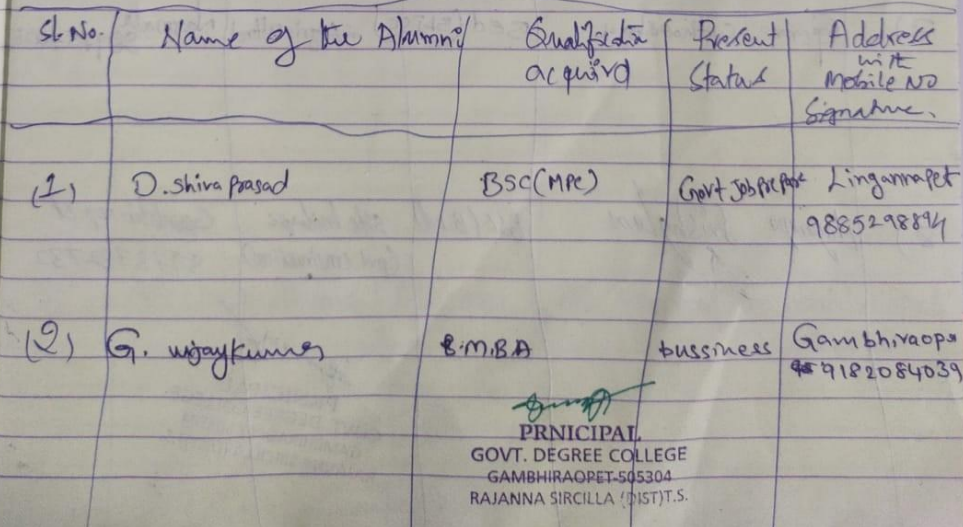 Sl. No. Name of the Alumni Qualification acquird Present Status Address with Mobile No Signature.
(1) D. Shiva prasad BSC (MPC) Govt Job prepare Lingannapet
9885298894
(2) G. vijay kumar B.M.B.A bussiness Gambhiraope
9182084039
PRNICIPAL
GOVT. DEGREE COLLEGE
GAMBHIRAOPET-505304
RAJANNA SIRCILLA (DIST)T.S.